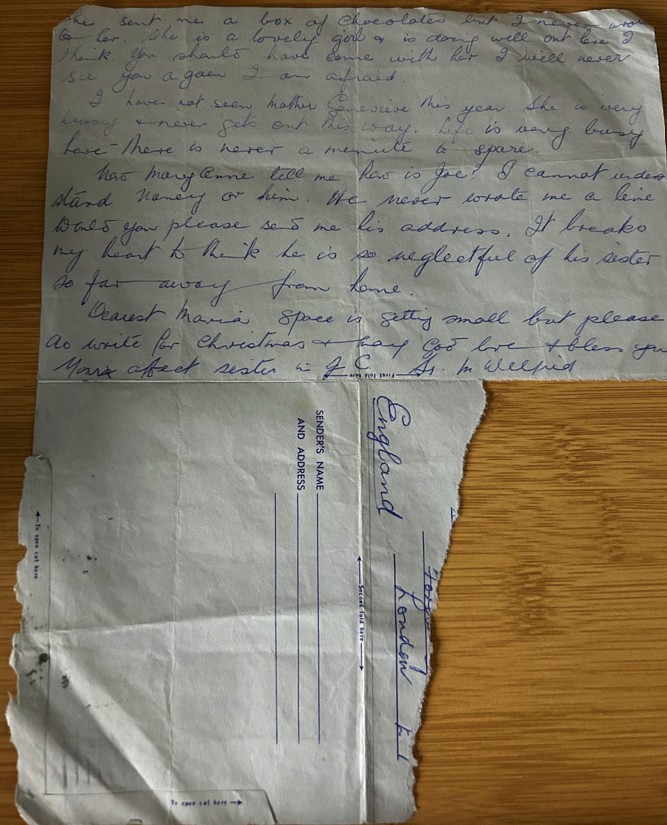 She sent me a box of Chocolates but I never wrote
to her. She is a lovely girl & is doing well out here I
think you should have come with her I will never
see you again I am afraid.
I have not seen Mother Genevieve this year. She is very
busy & never gets out this way. Life is very busy
here - there is never a minute to spare.
Now Mary Anne tell me how is Joe? I cannot under
stand Nancy or him. He never wrote me a line
Would you please send me his address. It breaks
my heart to think he is so neglectful of his sister
so far away from home.
Dearest Maria space is getting small but please
do write for Christmas & may God love & bless you
Your affect sister in J C Sr. M Wilfrid
First fold here
England
London
SENDER'S NAME
AND ADDRESS
Second fold here
To open cut here
To open cut here